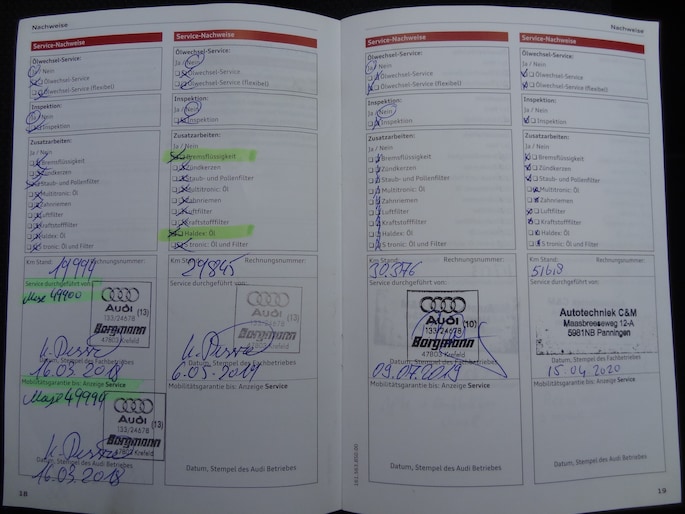 Nachweise
Service-Nachweise
Ölwechsel-Service:
Ja / Nein
Ölwechsel-Service
Ölwechsel-Service (flexibel)
Inspektion:
Ja / Nein
Inspektion
Zusatzarbeiten:
Ja / Nein
Bremsflüssigkeit
Zündkerzen
Staub- und Pollenfilter
Multitronic: Öl
Zahnriemen
Luftfilter
Kraftstofffilter
Haldex: Öl
S tronic: Öl und Filter
Km Stand: Rechnungsnummer:
19994
Service durchgeführt von:
Max 49900
Audi (13)
133/24678
Borgmann
47803 Krefeld
Datum, Stempel des Fachbetriebes
16.03.2018
Mobilitätsgarantie bis: Anzeige Service
Audi (13)
133/24678
Borgmann
47803 Krefeld
Datum, Stempel des Audi Betriebes
16.03.2018
18
Service-Nachweise
Ölwechsel-Service:
Ja / Nein
Ölwechsel-Service
Ölwechsel-Service (flexibel)
Inspektion:
Ja / Nein
Inspektion
Zusatzarbeiten:
Ja / Nein
Bremsflüssigkeit
Zündkerzen
Staub- und Pollenfilter
Multitronic: Öl
Zahnriemen
Luftfilter
Kraftstofffilter
Haldex: Öl
S tronic: Öl und Filter
Km Stand: Rechnungsnummer:
29845
Service durchgeführt von:
Audi (13)
133/24678
Borgmann
47803 Krefeld
Datum, Stempel des Fachbetriebes
Mobilitätsgarantie bis: Anzeige Service
Datum, Stempel des Audi Betriebes
Nachweise
Service-Nachweise
Ölwechsel-Service:
Ja / Nein
Ölwechsel-Service
Ölwechsel-Service (flexibel)
Inspektion:
Ja / Nein
Inspektion
Zusatzarbeiten:
Ja / Nein
Bremsflüssigkeit
Zündkerzen
Staub- und Pollenfilter
Multitronic: Öl
Zahnriemen
Luftfilter
Kraftstofffilter
Haldex: Öl
S tronic: Öl und Filter
Km Stand: Rechnungsnummer:
30.376
Service durchgeführt von:
Audi
133/24678 (10)
Borgmann
47803 Krefeld
Datum, Stempel des Fachbetriebes
09.07.2019
Mobilitätsgarantie bis: Anzeige Service
Datum, Stempel des Audi Betriebes
Service-Nachweise
Ölwechsel-Service:
Ja / Nein
Ölwechsel-Service
Ölwechsel-Service (flexibel)
Inspektion:
Ja / Nein
Inspektion
Zusatzarbeiten:
Ja / Nein
Bremsflüssigkeit
Zündkerzen
Staub- und Pollenfilter
Multitronic: Öl
Zahnriemen
Luftfilter
Kraftstofffilter
Haldex: Öl
S tronic: Öl und Filter
Km Stand: Rechnungsnummer:
Service durchgeführt von:
Autotechniek C&M
Maasbreeseweg 12-A
5981NB Panningen
Datum, Stempel des Fachbetriebes
15.04.2020
Mobilitätsgarantie bis: Anzeige Service
Datum, Stempel des Audi Betriebes
19